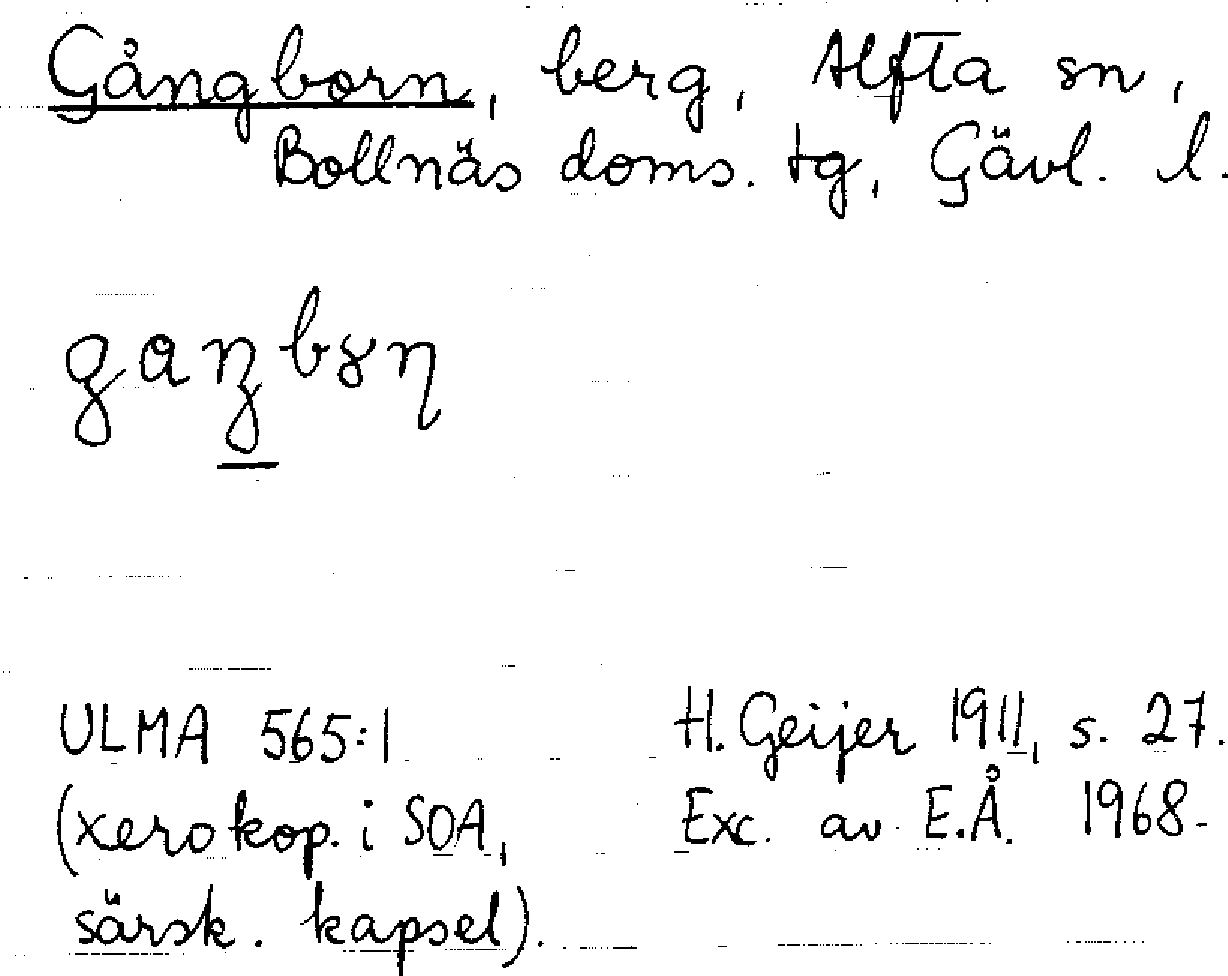 Gångborn, berg, Alfta sn,
Bollnäs doms. tg, Gävl. l.
ULMA 565:1
(xerokop. i SOA,
särsk. kapsel).
H. Geijer 1911, s. 27.
Exc. av E.Å. 1968.